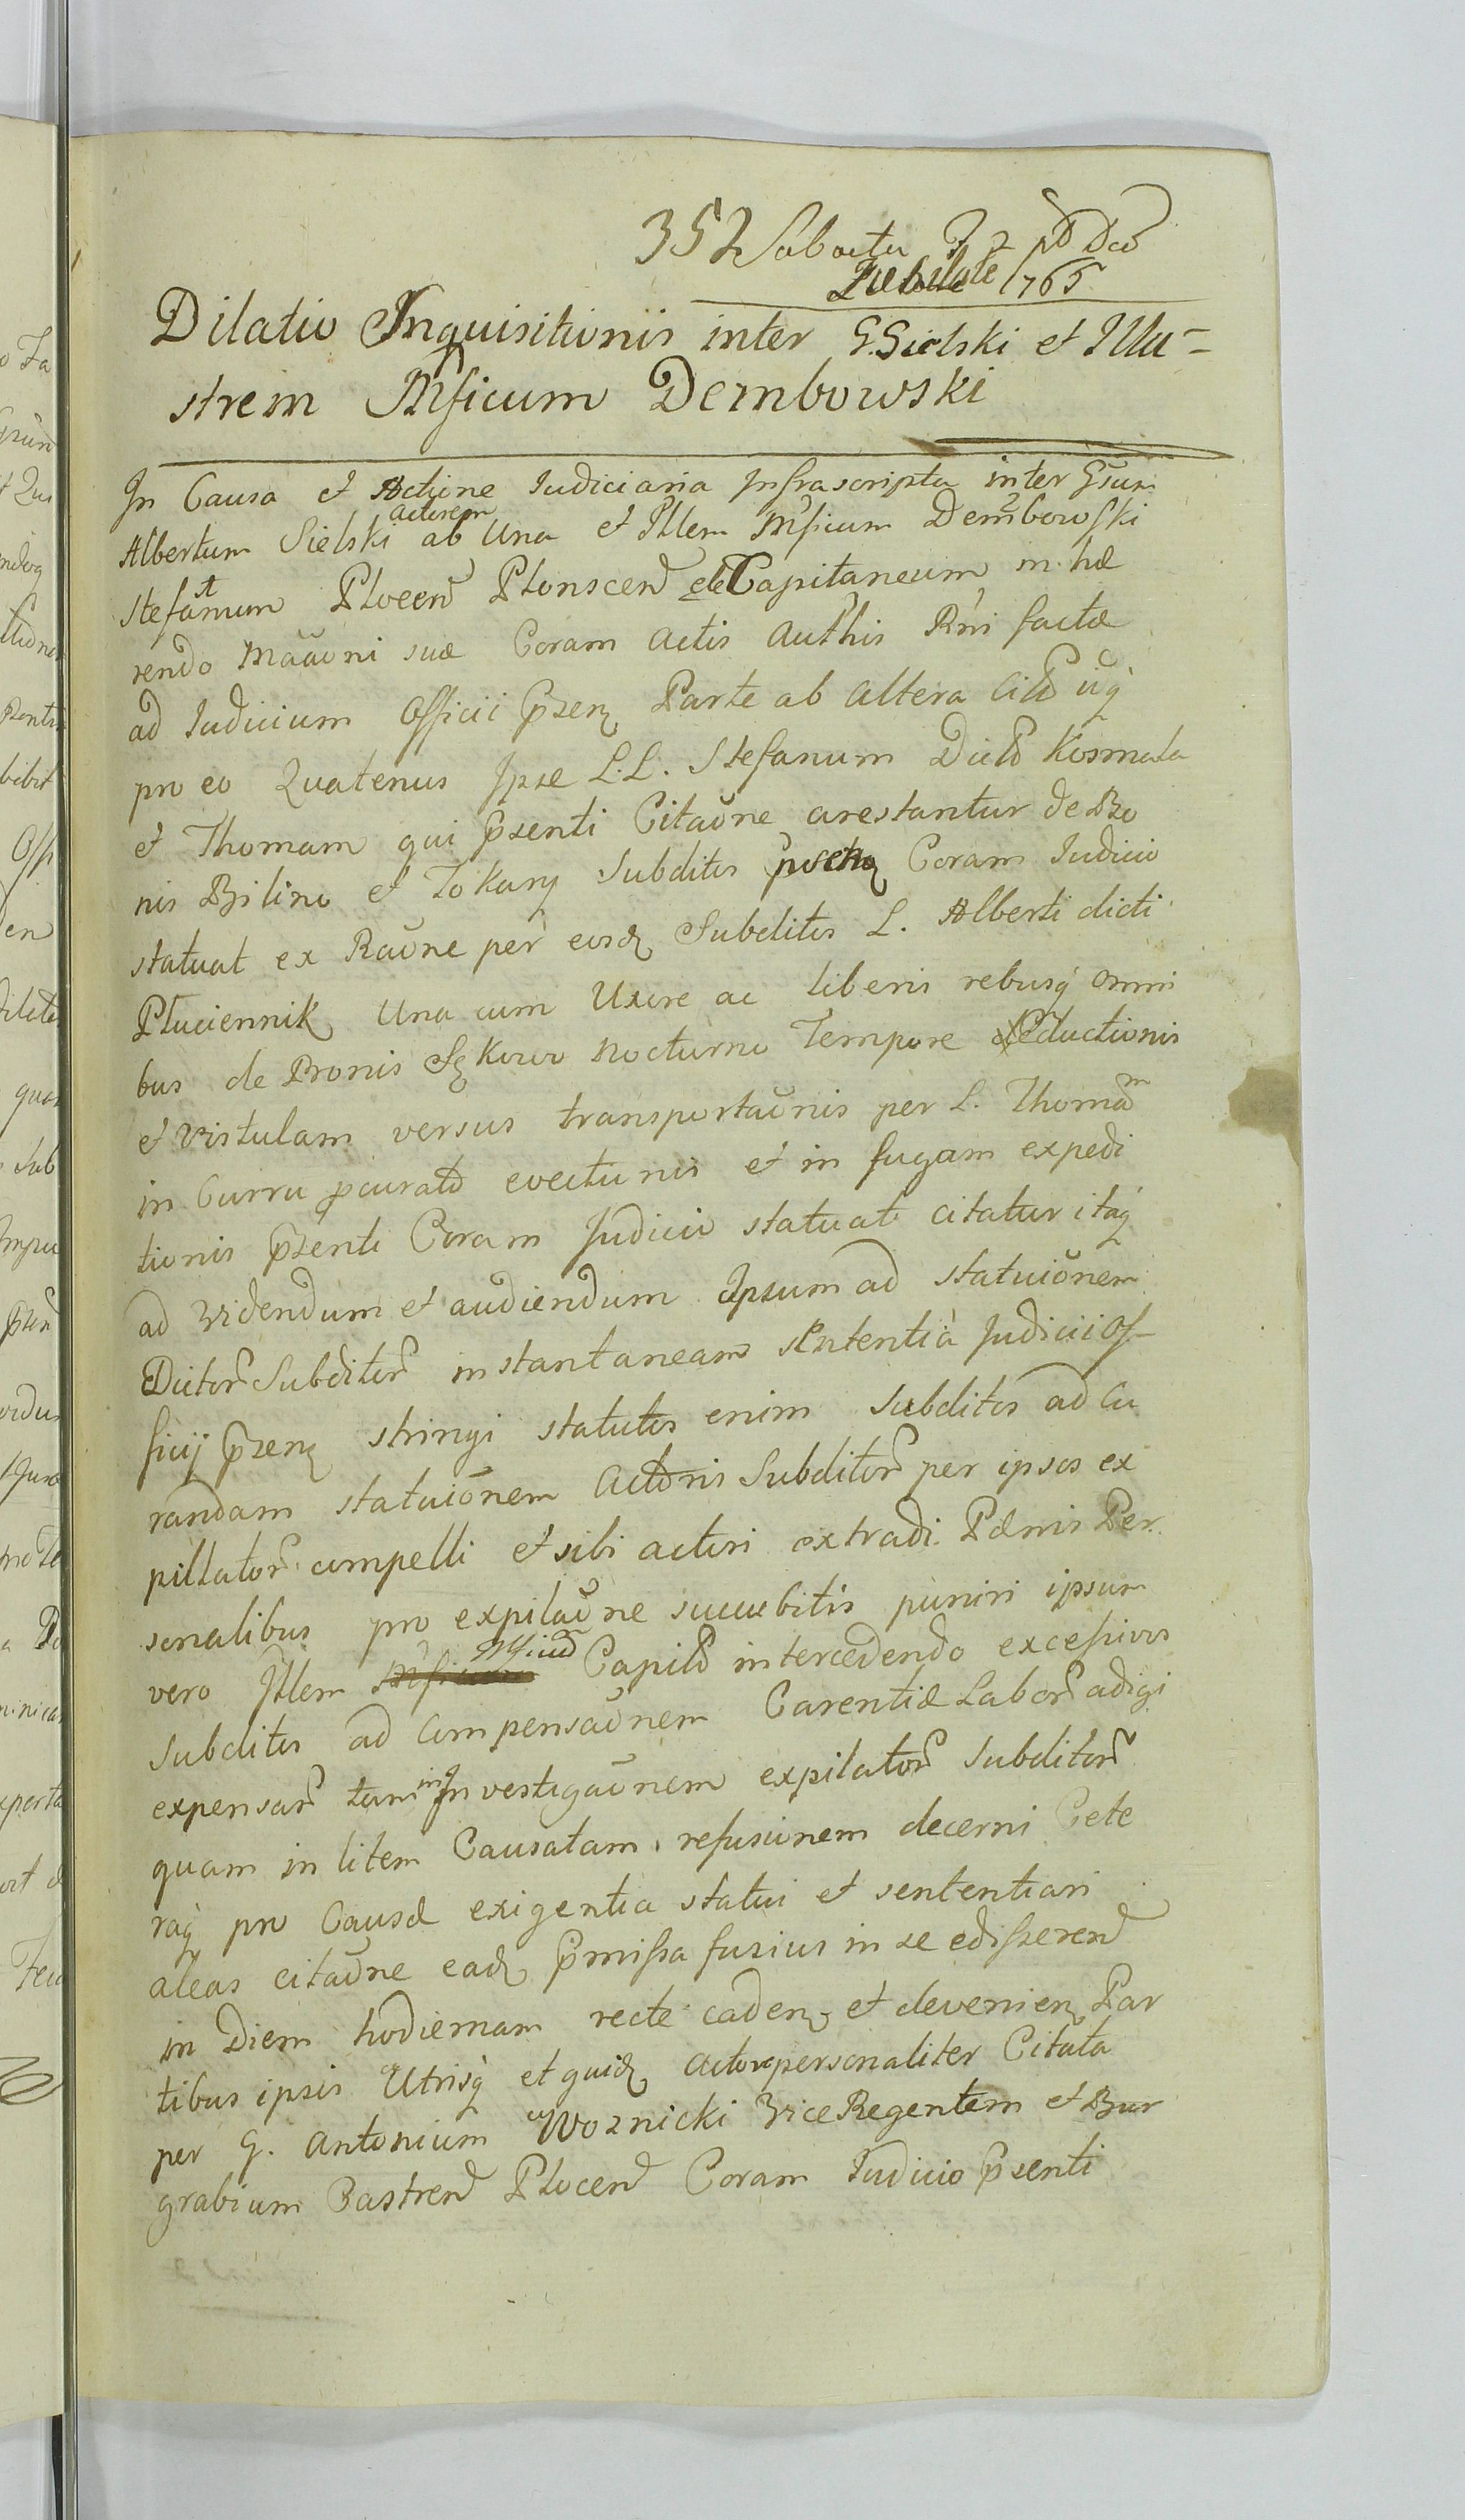 352 Sabatu pt Dca
Jubilate 1765
Dilatio Inquisitionis inter G. Sielski et Illu=
strem Mficum Dembowski
In Causa et Actione Iudiciaria Infrascripta inter Gsum
Albertum Sielski actorem ab Una et Illem Mficum Dembowski
Stefanum Plocen Plonscen Capitaneum in hæ
rendo Mãaõni suæ Coram Actis Authis Rni factæ
ad Iudicium Officii Pzen Parte ab altera Citt
pro eo Quatenus Ipse L.L. Stefanum Dictt Kosmala
et Thomam qui Pzenti Citaõne arestantur de Bo
nis Bilino et Tokary Subditos Coram Iudicio
statuat ex Raõne per eosd Subditos L. Alberti dicti
Pluciennik Una cum Uxore ac liberis rebusq omni
bus de Bonis Sękowo nocturno Tempore eductionis
et Vistulam versus transportaõnis per L. Thomam
in Curru pcuratt evectionis et in fugam expedi
tionis Pzenti Coram Judicio statuat citatur itaq
ad videndum et audiendum Ipsum ad statuiõnem
Dictor Subditor instantaneam sententia Judicii Of-
ficij Pzen stringi statutos enim Subditos ad Cu
randam statuiõnem Actoris Subditor per ipsos ex
pillator compelli et sibi actori extradi Pænis Per
sonalibus pro expilaõne succubitis puniri ipsum
vero Illem Mficũ Capitt intercedendo excessivos
Subditos ad Compensaõnem Carentiæ Labor adigi
expensar tum in Investigaõnem expilator Subditor
quam in litem Causatam refusionem decerni Cete
raq pro Causæ exigentia statui et sententiari
aleas citaõne ead Pmissa fusius in se edisseren
in Diem hodiernam recte caden et devenien Par
tibus ipsis Utrisq et quid Actore personaliter Citata
per G. Antonium Woznicki Vice Regentem et Bur
grabium Castren Plocen Coram Iudicio Pzenti